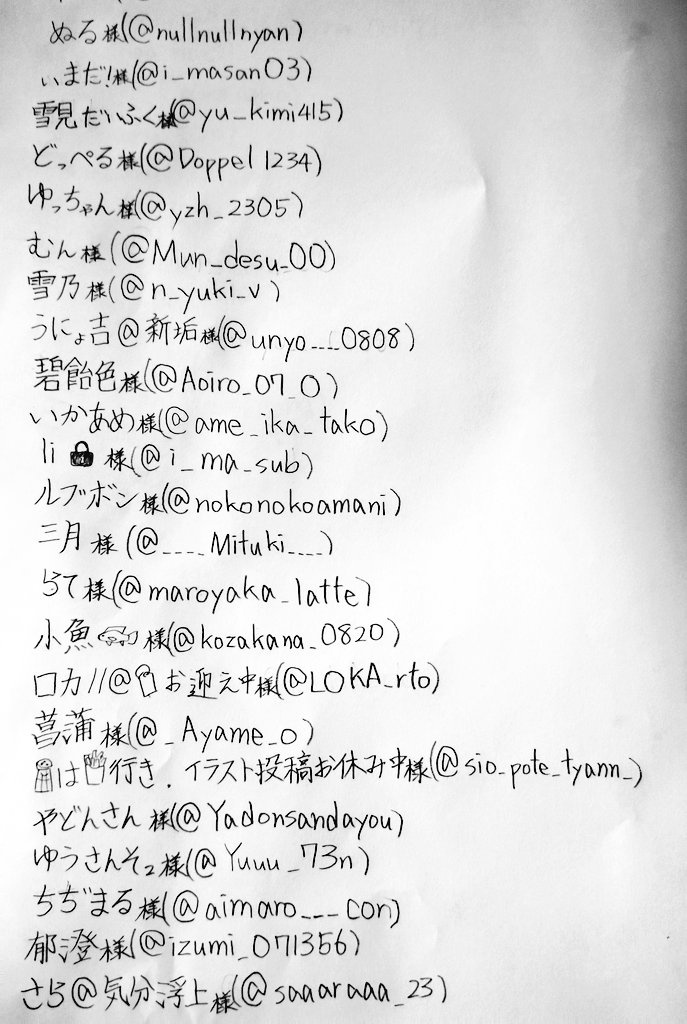 ぬる様(@nullnullnyan)
いまだ!様(@i_masan03)
雪見だいふく様(@yu_kimi415)
どっぺる様(@Doppel1234)
ゆっちゃん様(@yzh_2305)
むん様(@Mun_desu_00)
雪乃様(@n_yuki_v)
うにょ吉@新垢様(@unyo___0808)
碧飴色様(@Aoiro_07_0)
いかあめ様(@ame_ika_tako)
li🔒様(@i_ma_sub)
ルブボン様(@nokonokoamani)
三月様(@____Mituki____)
らて様(@maroyaka_latte)
小魚🐟様(@kozakana_0820)
ロカ//@お迎え中様(@LOKA_rto)
菖蒲様(@_Ayame_o)
🧂は🍟行き.イラスト投稿お休み中様(@sio_pote_tyann_)
やどんさん様(@Yadonsandayou)
ゆうさんそ2様(@Yuuu_73n)
ちぢまる様(@aimaro___con)
郁澄様(@izumi_071356)
さら@気分浮上様(@saaaraaa_23)